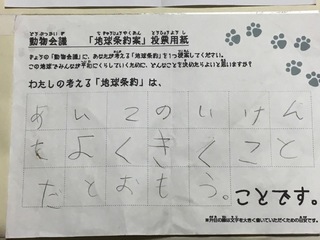 動物会議 「地球条約案」投票用紙
きょうの「動物会議」に、あなたが考える「地球条約」を1つ提案してください。
この地球でみんなが平和にくらしていくために、どんなことを決めたらよいと思いますか?
わたしの考える「地球条約」は、
あいてのいけん
もよくきくこと
だとおもう。
ことです。